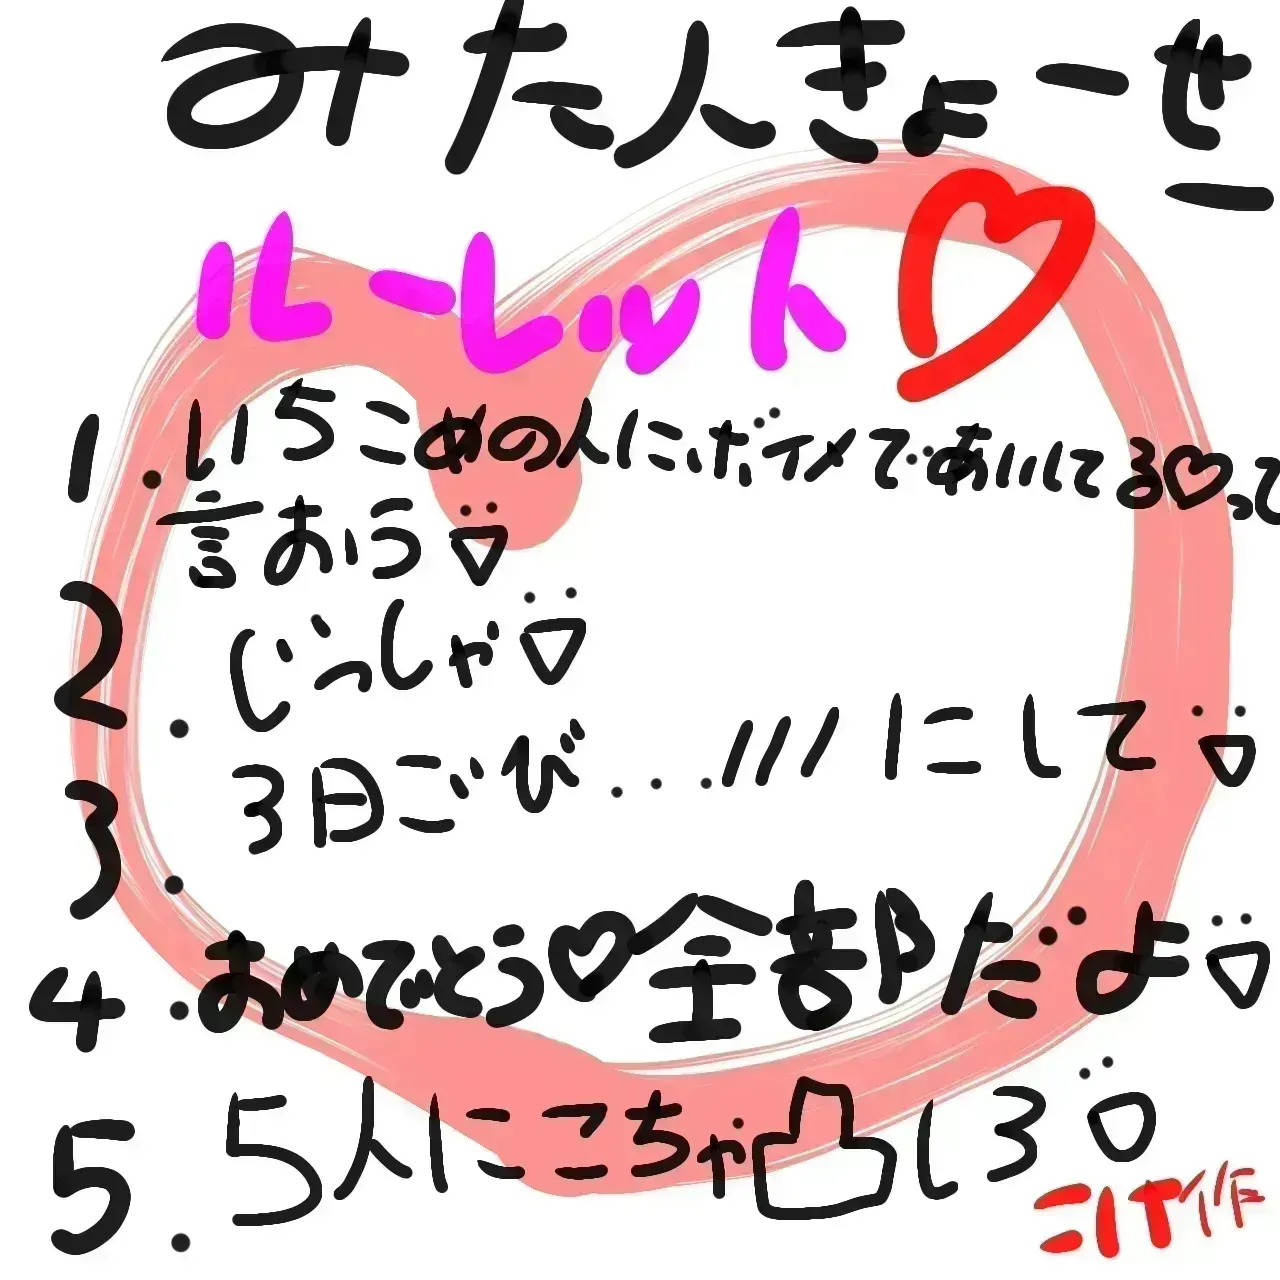 みた人きょーせー
ルーレット♡
1.いちこめの人にボイメであいしてる♡って
言おう
2.じっしゃ
3.3日ごび...///にして
4.おめでとう♡全部だよ
5.5人にこちゃ凸しろ